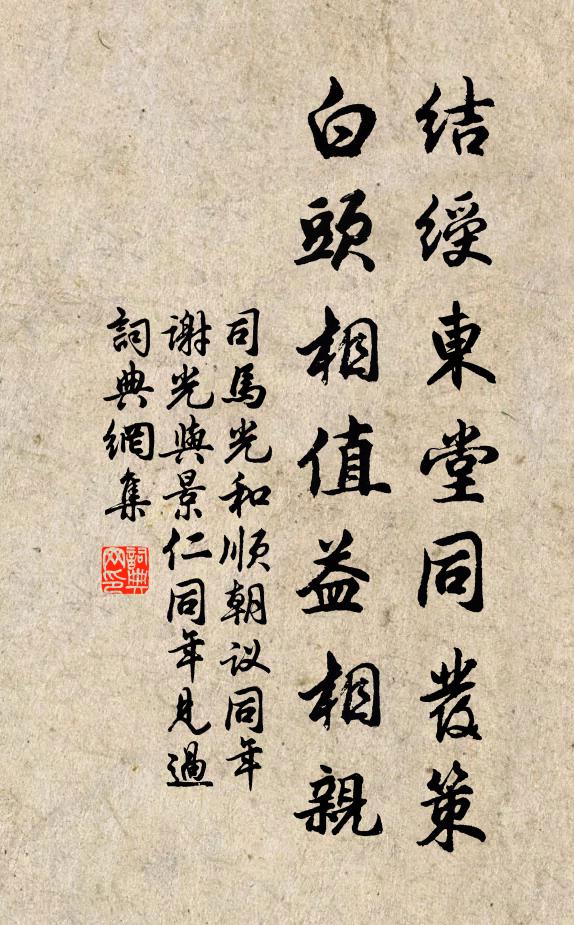 结绶東堂同發策
白頭相值益相親
司馬光和顺朝议同年
謝光與景仁同年見過
詞典網集
詞典网印